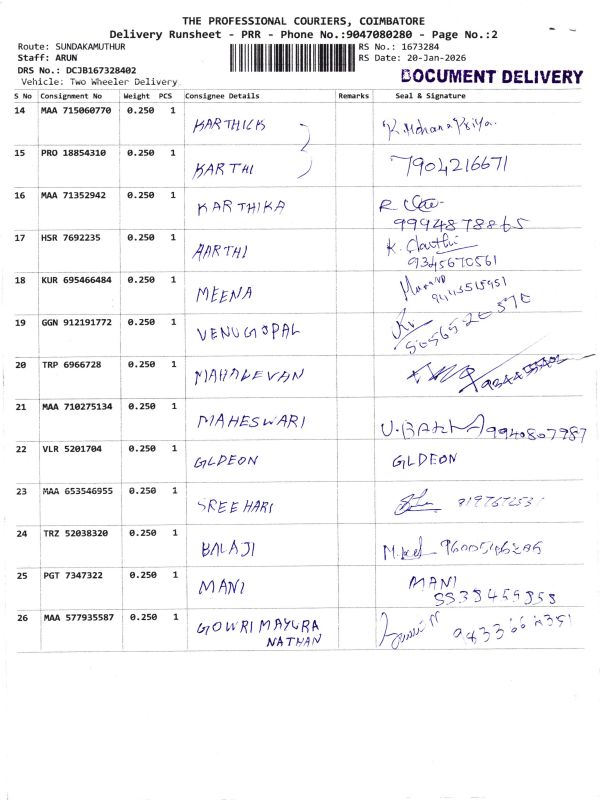 THE PROFESSIONAL COURIERS, COIMBATORE
Delivery Runsheet - PRR - Phone No.:9047080280 - Page No.:2
Route: SUNDAKAMUTHUR
RS No.: 1673284
Staff: ARUN
RS Date: 20-Jan-2026
DRS No.: DCJB167328402
Vehicle: Two Wheeler Delivery
DOCUMENT DELIVERY
S No Consignment No Weight PCS Consignee Details Remarks Seal & Signature
14 MAA 715060770 0.250 1 KARTHICK K. Mohana Priya.
15 PRO 18854310 0.250 1 KARTHI 7904216671
16 MAA 71352942 0.250 1 KARTHIKA R
9994878865
17 HSR 7692235 0.250 1 AARTHI K.
9345670561
18 KUR 695466484 0.250 1 MEENA
19 GGN 912191772 0.250 1 VENUGOPAL
20 TRP 6966728 0.250 1 MAHADEVAN
21 MAA 710275134 0.250 1 MAHESWARI 9940807987
22 VLR 5201704 0.250 1 GLDEON GLDEON
23 MAA 653546955 0.250 1 SREEHARI
24 TRZ 52038320 0.250 1 BALAJI
25 PGT 7347322 0.250 1 MANI MANI
26 MAA 577935587 0.250 1 GOWRI MAYURA
NATHAN